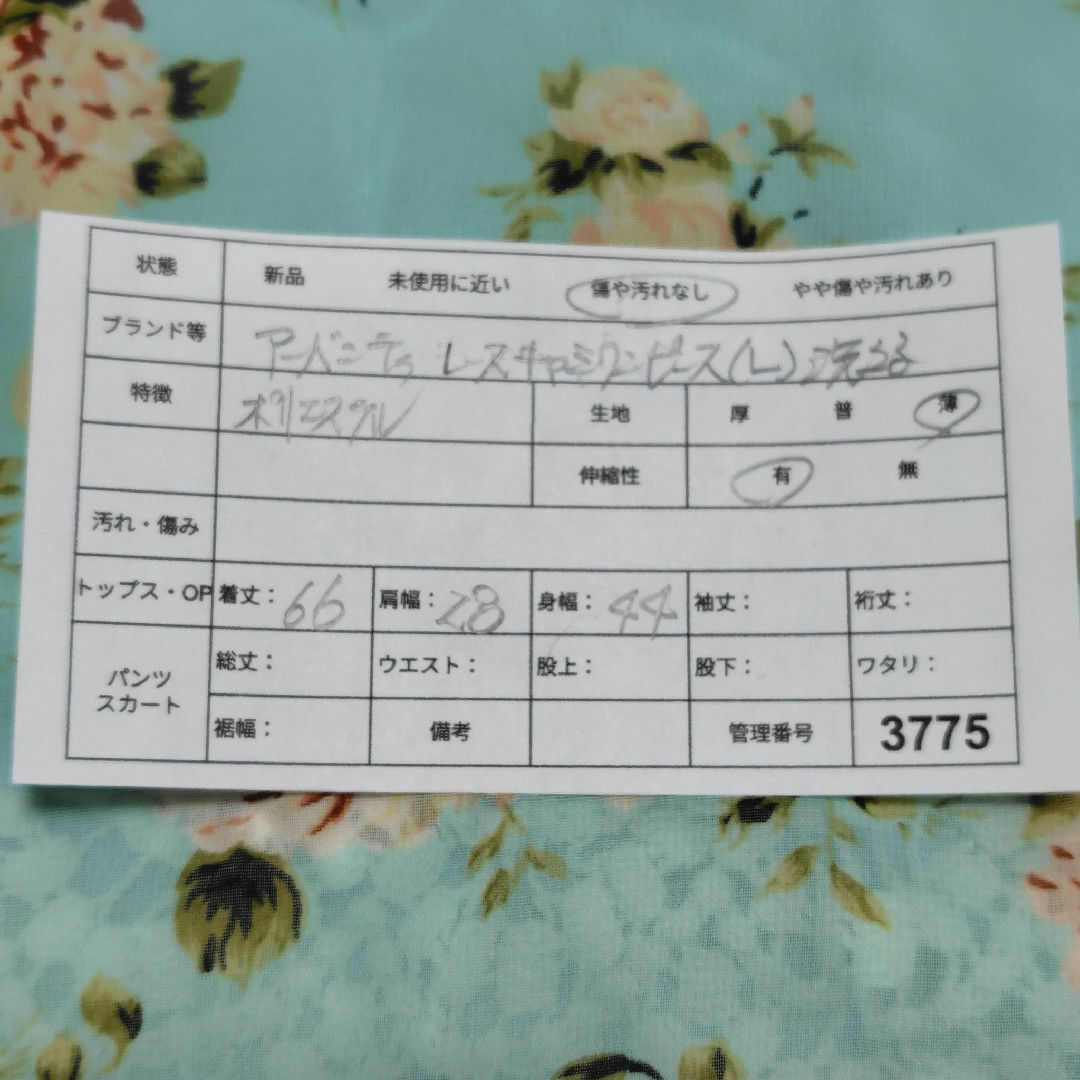 状態 新品 未使用に近い 傷や汚れなし やや傷や汚れあり
ブランド等 レースキャミワンピース(L)
特徴 ポリエステル 生地 厚 普 薄
伸縮性 有 無
汚れ・傷み
トップス・OP 着丈: 66 肩幅: 28 身幅: 44 袖丈: 裄丈:
パンツ スカート 総丈: ウエスト: 股上: 股下: ワタリ:
裾幅: 備考 管理番号 3775